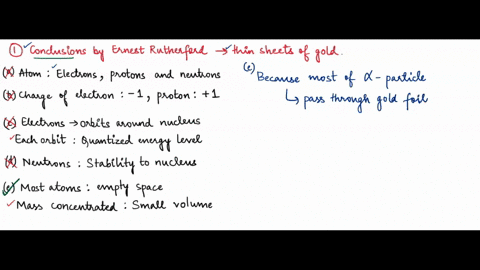 ① Conclusions by Ernest Rutherford → thin sheets of gold.
(a) Atom : Electrons, protons and neutrons
(b) Charge of electron : -1, proton : +1
(c) Electrons → orbits around nucleus
Each orbit : Quantized energy level
(d) Neutrons : Stability to nucleus
(e) Most atoms : empty space
Mass concentrated : Small volume
(e)
Because most of α-particle
↳ pass through gold foil